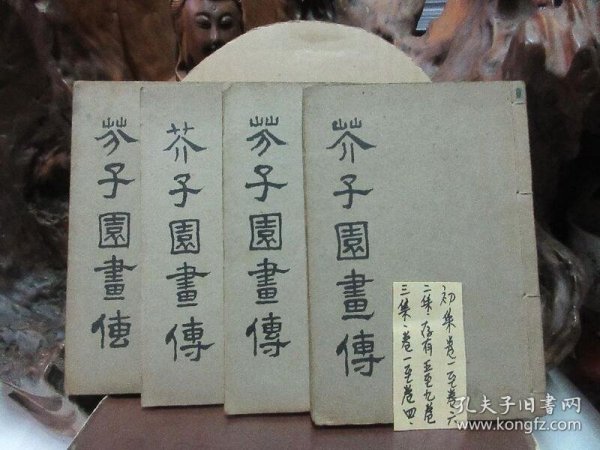 芥子園畫傳
芥子園畫傳
芥子園畫傳
芥子園畫傳
初集卷一至卷六
二集·存有五至九卷
三集·卷一至卷四·
孔夫子旧书网
www.kongfz.com